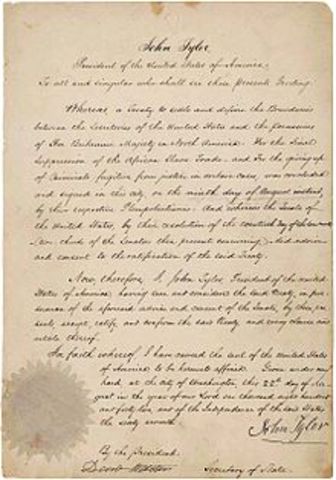 John Tyler
President of the United States of America
To all and singular who shall see these Presents Greeting
Whereas, a Treaty to settle and define the Boundaries
between the Territories of the United States and the possessions
of Her Britannic Majesty in North America: For the final
Suppression of the African Slave Trade: and For the giving up
of Criminals fugitive from justice, in certain cases, was concluded
and signed in this city, on the ninth day of August instant,
by their respective Plenipotentiaries: And whereas the Senate of
the United States, by their resolution of the twentieth day of
two-thirds of the Senators then present concurring, did advise
and consent to the ratification of the said Treaty:
Now, therefore, I, John Tyler, President of the United
States of America, having seen and considered the said Treaty, in pur-
suance of the aforesaid advice and consent of the Senate, by these pre-
sents, accept, ratify, and confirm the said Treaty and every clause and
article thereof.
In faith whereof, I have caused the seal of the United States
of America to be hereunto affixed. Given under my
hand, at the city of Washington, this 22d day of Au-
gust in the year of our Lord one thousand eight hundred
and forty-two, and of the Independence of the said States
the sixty seventh.
John Tyler
By the president:
Secretary of State.